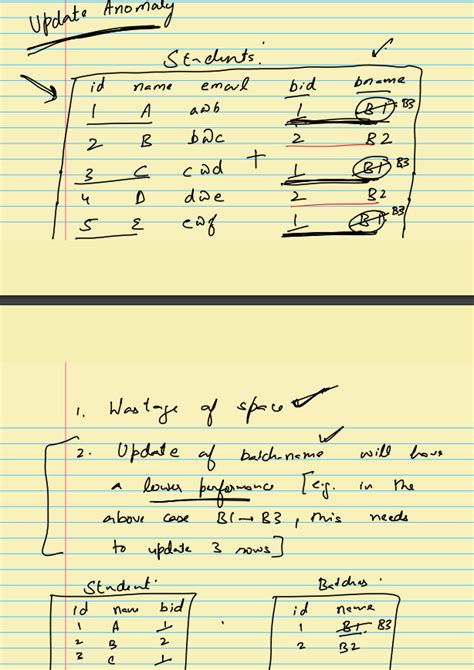 Update Anomaly
Students.
id name email bid bname
1 A a@b 1 B1 B3
2 B b@c 2 B2
3 C c@d + 1 B1 B3
4 D d@e 2 B2
5 E e@f 1 B1 B3
1. Wastage of space
2. Update of batch-name will have
a lower performance [e.g. in the
above case B1→B3, this needs
to update 3 rows]
Student. Batches.
id name bid id name
1 A 1 1 B1 B3
2 B 2 2 B2
3 C 1